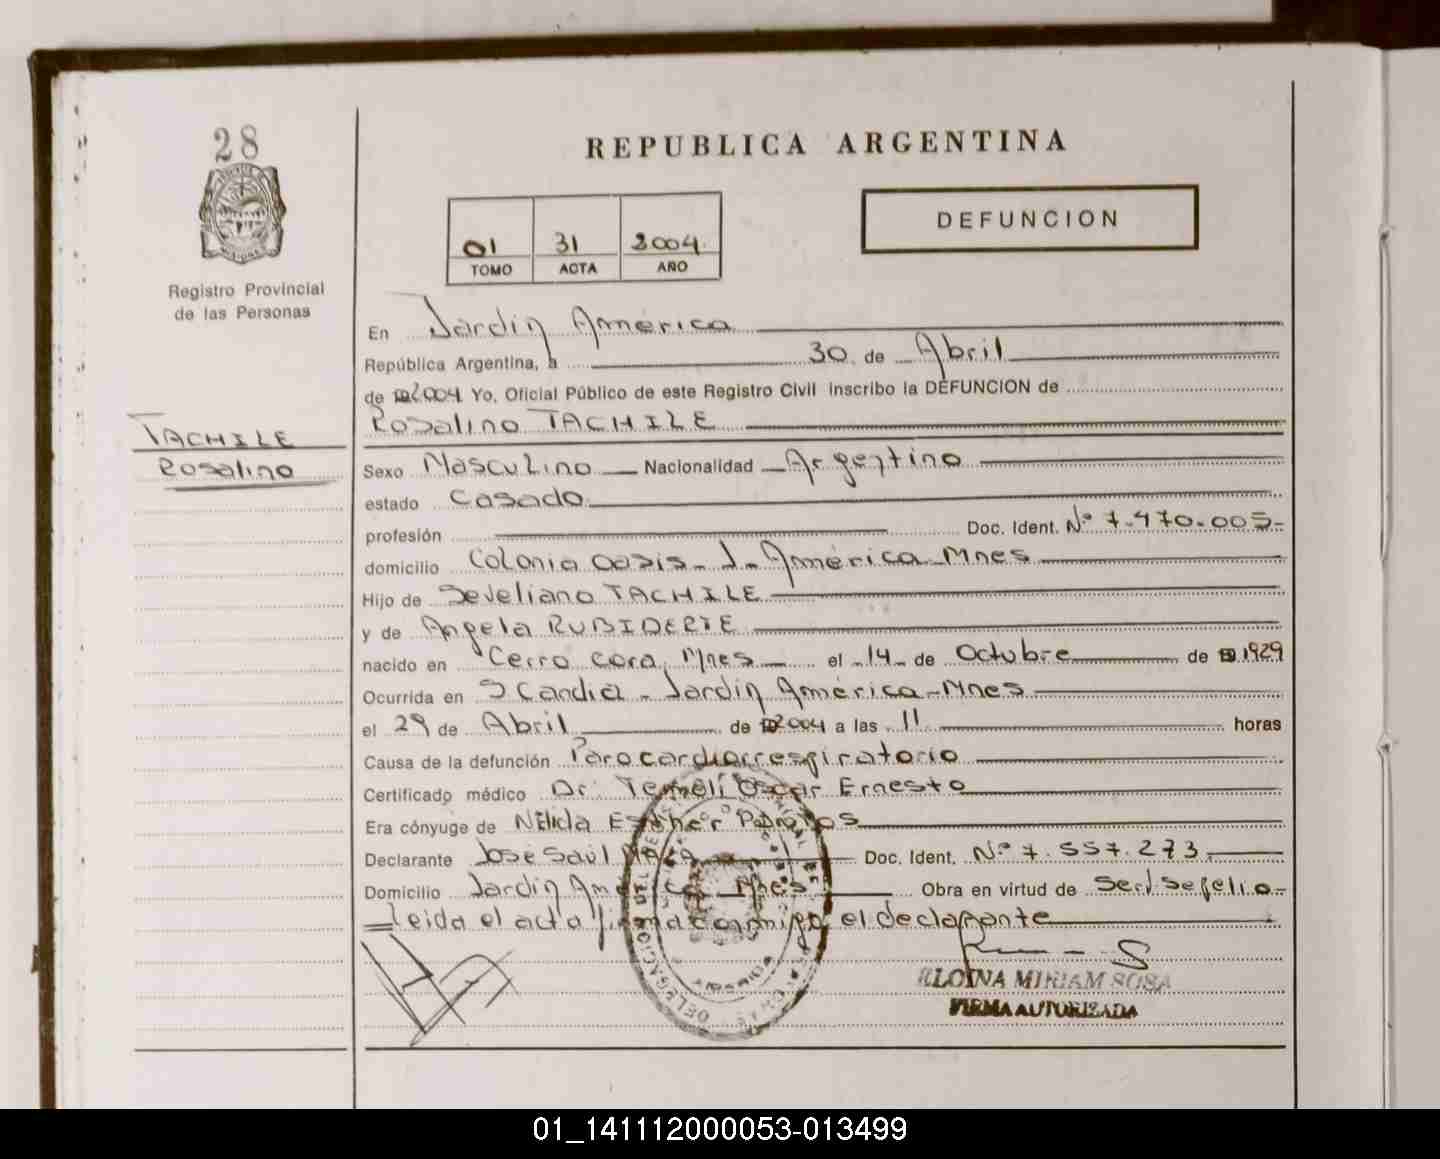 28
Registro Provincial
de las Personas
REPUBLICA ARGENTINA
01 31 2004
TOMO ACTA AÑO
DEFUNCION
TACHILE
Rosalino
En Jardín América
República Argentina, a 30 de Abril
de 2004 Yo, Oficial Público de este Registro Civil inscribo la DEFUNCION de
Rosalino TACHILE
Sexo Masculino Nacionalidad Argentino
estado Casado
profesión Doc. Ident. Nº 7.470.005
domicilio Colonia oasis - J. América - Mnes
Hijo de Seveliano TACHILE
y de Angela RUBIDERTE
nacido en Cerro cora, Mnes el 14 de Octubre de 1929
Ocurrida en S Candia - Jardín América - Mnes
el 29 de Abril de 2004 a las 11 horas
Causa de la defunción Parocardiorrespiratorio
Certificado médico Dr. Temeli Oscar Ernesto
Era cónyuge de Nélida Esther
Declarante José Saul Doc. Ident. Nº 7.557.273
Domicilio Jardín América Mnes Obra en virtud de Serv sepelio
Leida el acta firma conmigo el declarante
ELOINA MIRIAM SOSA
FIRMA AUTORIZADA
DELEGACION
01_141112000053-013499